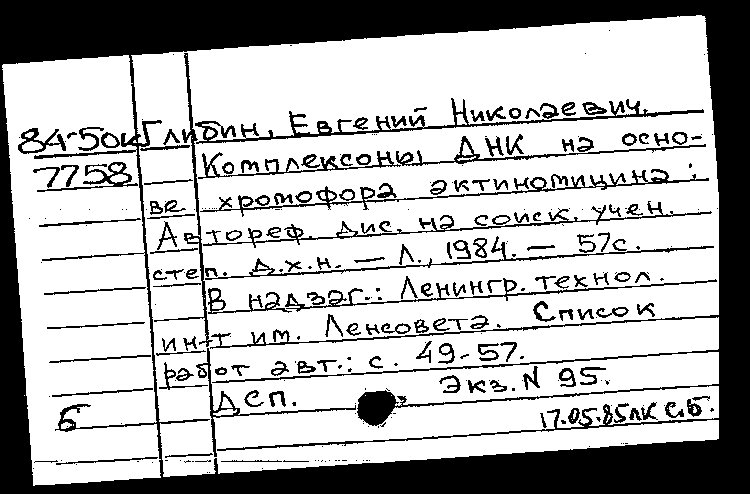 84-50к Глибин, Евгений Николаевич.
7758 Комплексоны ДНК на осно-
ве хромофора актиномицина :
Автореф. дис. на соиск. учен.
степ. д.х.н. — Л., 1984. — 57с.
В надзаг.: Ленингр. технол.
ин-т им. Ленсовета. Список
работ авт.: с. 49-57.
ДСП. Экз. N 95.
Б
17.05.85 ЛК С.Б.